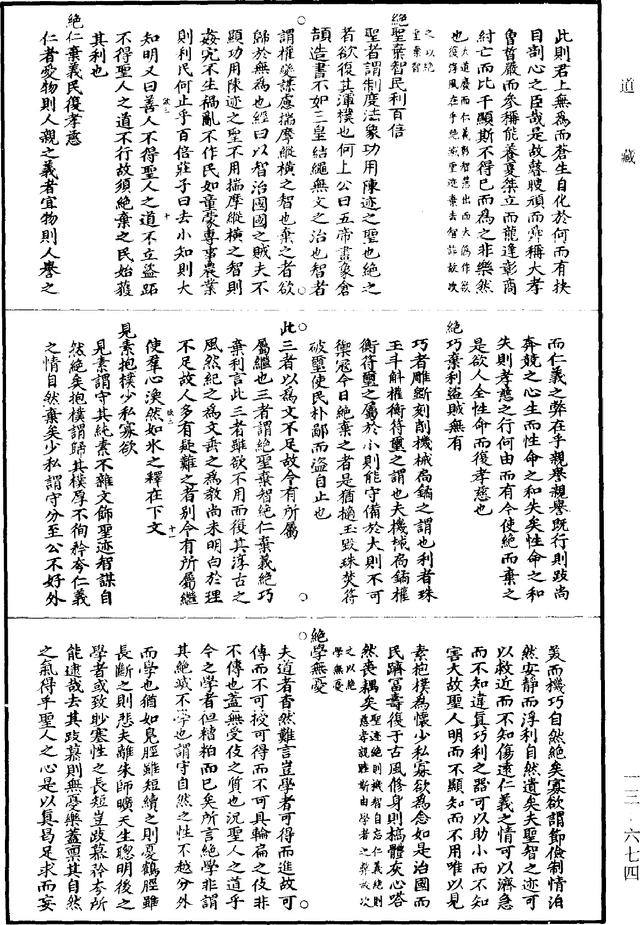 道藏
此則君上無為而蒼生自化於何而有抶
目割心之臣哉是故瞽瞍頑而舜稱大孝
曾晳嚴而參稱能養夏桀立而龍逢彰商
紂亡而比干顯斯不得已而為之非樂然
也
大道廢而仁義彰智慧出而大偽作
復淳風在乎絶滅聖迹棄去智詐故次
之以絶
聖棄智
絶聖棄智民利百倍
聖者謂制度法象功用陳迹之聖也絶之
者欲復其渾樸也河上公曰五帝畫象倉
頡造書不如三皇結繩無文之治也智者
謂權變謀慮揣摩縱橫之智也棄之者欲
歸於無為也經曰以智治國國之賊夫不
顯功用陳迹之聖不用揣摩縱橫之智則
姦宄不生禍亂不作民如童蒙專事農業
則利民何止乎百倍莊子曰去小知則大
知明又曰善人不得聖人之道不立盜跖
不得聖人之道不行故須絶棄之民始獲
其利也
絶仁棄義民復孝慈
仁者愛物則人親之義者宜物則人譽之
而仁義之弊在乎親譽親譽既行則跂尚
奔競之心生而性命之和失矣性命之和
失則孝慈之行何由而有今使絶而棄之
是欲人全性命而復孝慈也
絶巧棄利盜賊無有
巧者雕斲刻削機械扃鐍之謂也利者珠
玉斗斛權衡符璽之謂也夫機械扃鐍權
衡符璽之屬於小則能守備於大則不可
禦寇今日絶棄之者是猶擿玉毀珠焚符
破璽使民朴鄙而盜自止也
此三者以為文不足故令有所屬
屬繼也三者謂絶聖棄智絶仁棄義絶巧
棄利言此三者雖欲不用而復其淳古之
風然紀之為文垂之為教尚未明白於理
不足故人多有疑難之者別令有所屬繼
使羣心渙然如氷之釋在下文
見素抱樸少私寡欲
見素謂守其純素不雜文飾聖迹智謀自
然絶矣抱樸謂歸其樸厚不徇矜夸仁義
之情自然棄矣少私謂守分至公不好外
美而機巧自然絶矣寡欲謂節儉制情泊
然安靜而浮利自然遺矣夫聖智之迹可
以救近而不知傷遠仁義之情可以濟急
而不知違真巧利之器可以助小而不知
害大故聖人明而不顯知而不用唯以見
素抱樸為懷少私寡欲為念如是治國而
民躋冨壽復于古風修身則槁體灰心嗒
然喪耦矣
聖迹絶則機智自忘仁義絶則
孝慈親睦斯由學者之弊故次
之以絶
學無憂
絶學無憂
夫道者杳然難言豈學者可得而進故可
傳而不可授可得而不可具輪扁之伎非
不傳也蓋無受伎之質也況聖人之道乎
今之學者但糟粕而已矣所言絶學非謂
其絶滅不学也謂守自然之性不越分外
而學也猶如鳧脛雖短續之則憂鶴脛雖
長斷之則悲夫離朱師曠天生聰明後之
學者或致眇塞性之長短豈跂慕矜夸所
能逮哉去其跂慕則無憂樂蓋禀其自然
之氣得乎聖人之心是以真曷足求而妄
一三·六七四